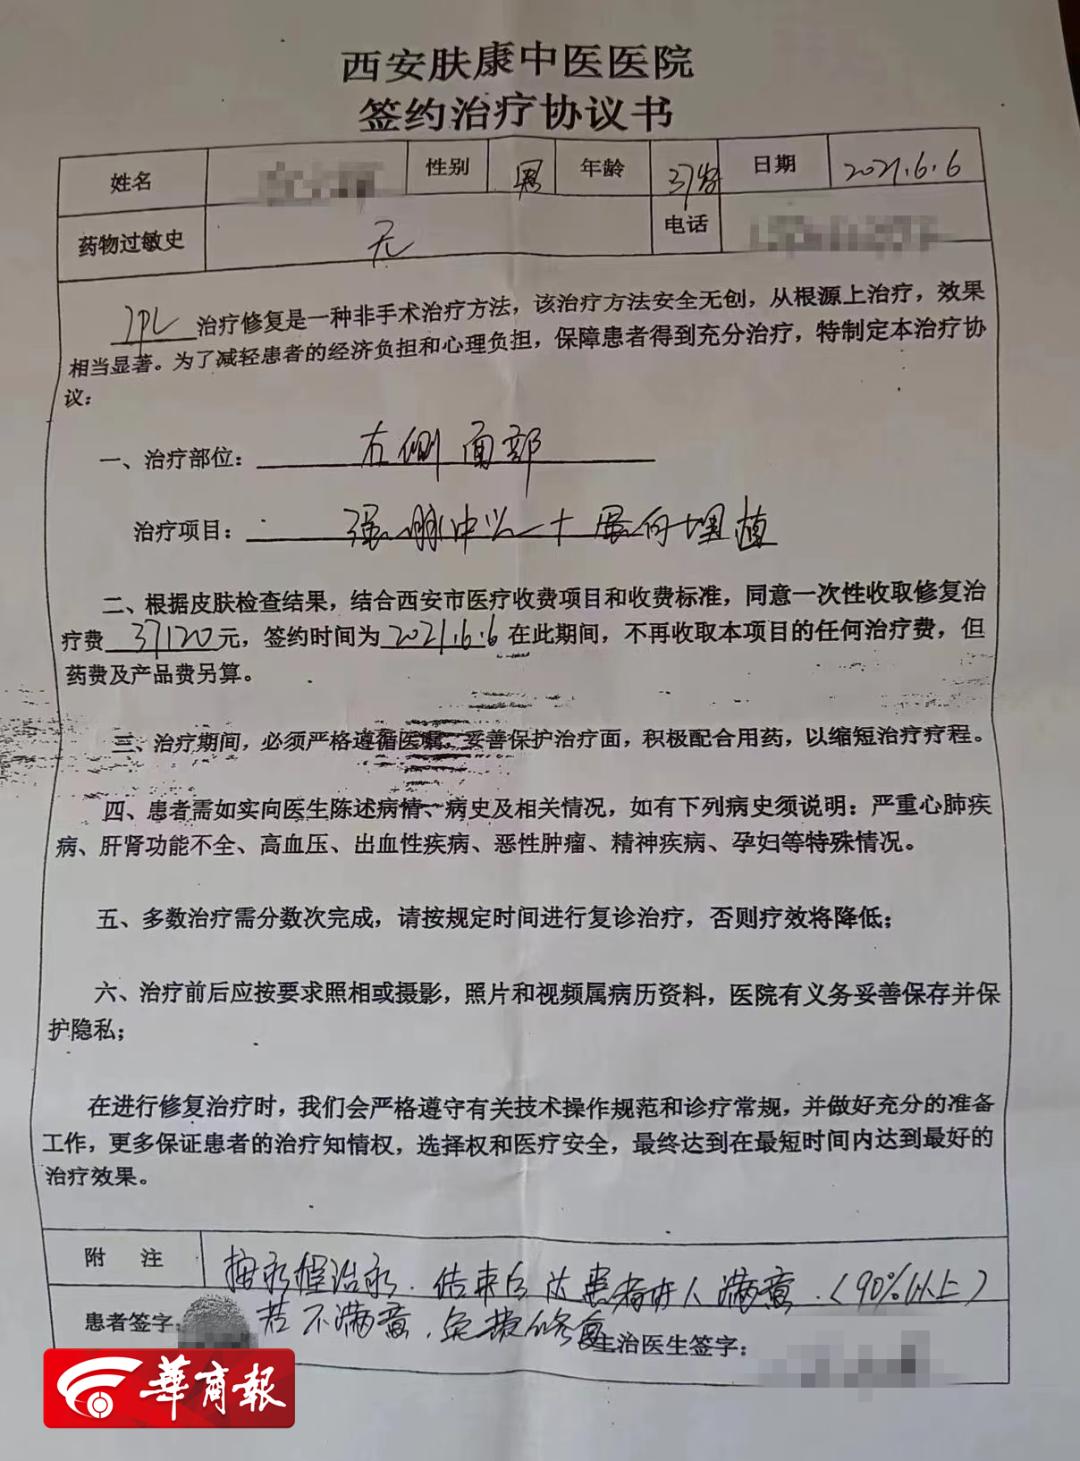 西安肤康中医医院
签约治疗协议书
姓名 性别 男 年龄 37岁 日期 2021.6.6
药物过敏史 无 电话
IPL 治疗修复是一种非手术治疗方法，该治疗方法安全无创，从根源上治疗，效果
相当显著。为了减轻患者的经济负担和心理负担，保障患者得到充分治疗，特制定本治疗协
议：
一、治疗部位： 右侧面部
治疗项目： 强脉冲 + 埋植
二、根据皮肤检查结果，结合西安市医疗收费项目和收费标准，同意一次性收取修复治
疗费 37120 元，签约时间为 2021.6.6 在此期间，不再收取本项目的任何治疗费，但
药费及产品费另算。
三、治疗期间，必须严格遵循医嘱，妥善保护治疗面，积极配合用药，以缩短治疗疗程。
四、患者需如实向医生陈述病情、病史及相关情况，如有下列病史须说明：严重心肺疾
病、肝肾功能不全、高血压、出血性疾病、恶性肿瘤、精神疾病、孕妇等特殊情况。
五、多数治疗需分数次完成，请按规定时间进行复诊治疗，否则疗效将降低；
六、治疗前后应按要求照相或摄影，照片和视频属病历资料，医院有义务妥善保存并保
护隐私；
在进行修复治疗时，我们会严格遵守有关技术操作规范和诊疗常规，并做好充分的准备
工作，更多保证患者的治疗知情权，选择权和医疗安全，最终达到在最短时间内达到最好的
治疗效果。
附 注 结束后达患者本人满意.（90%以上）
若不满意，免费修复
患者签字： 主治医生签字：
華商報